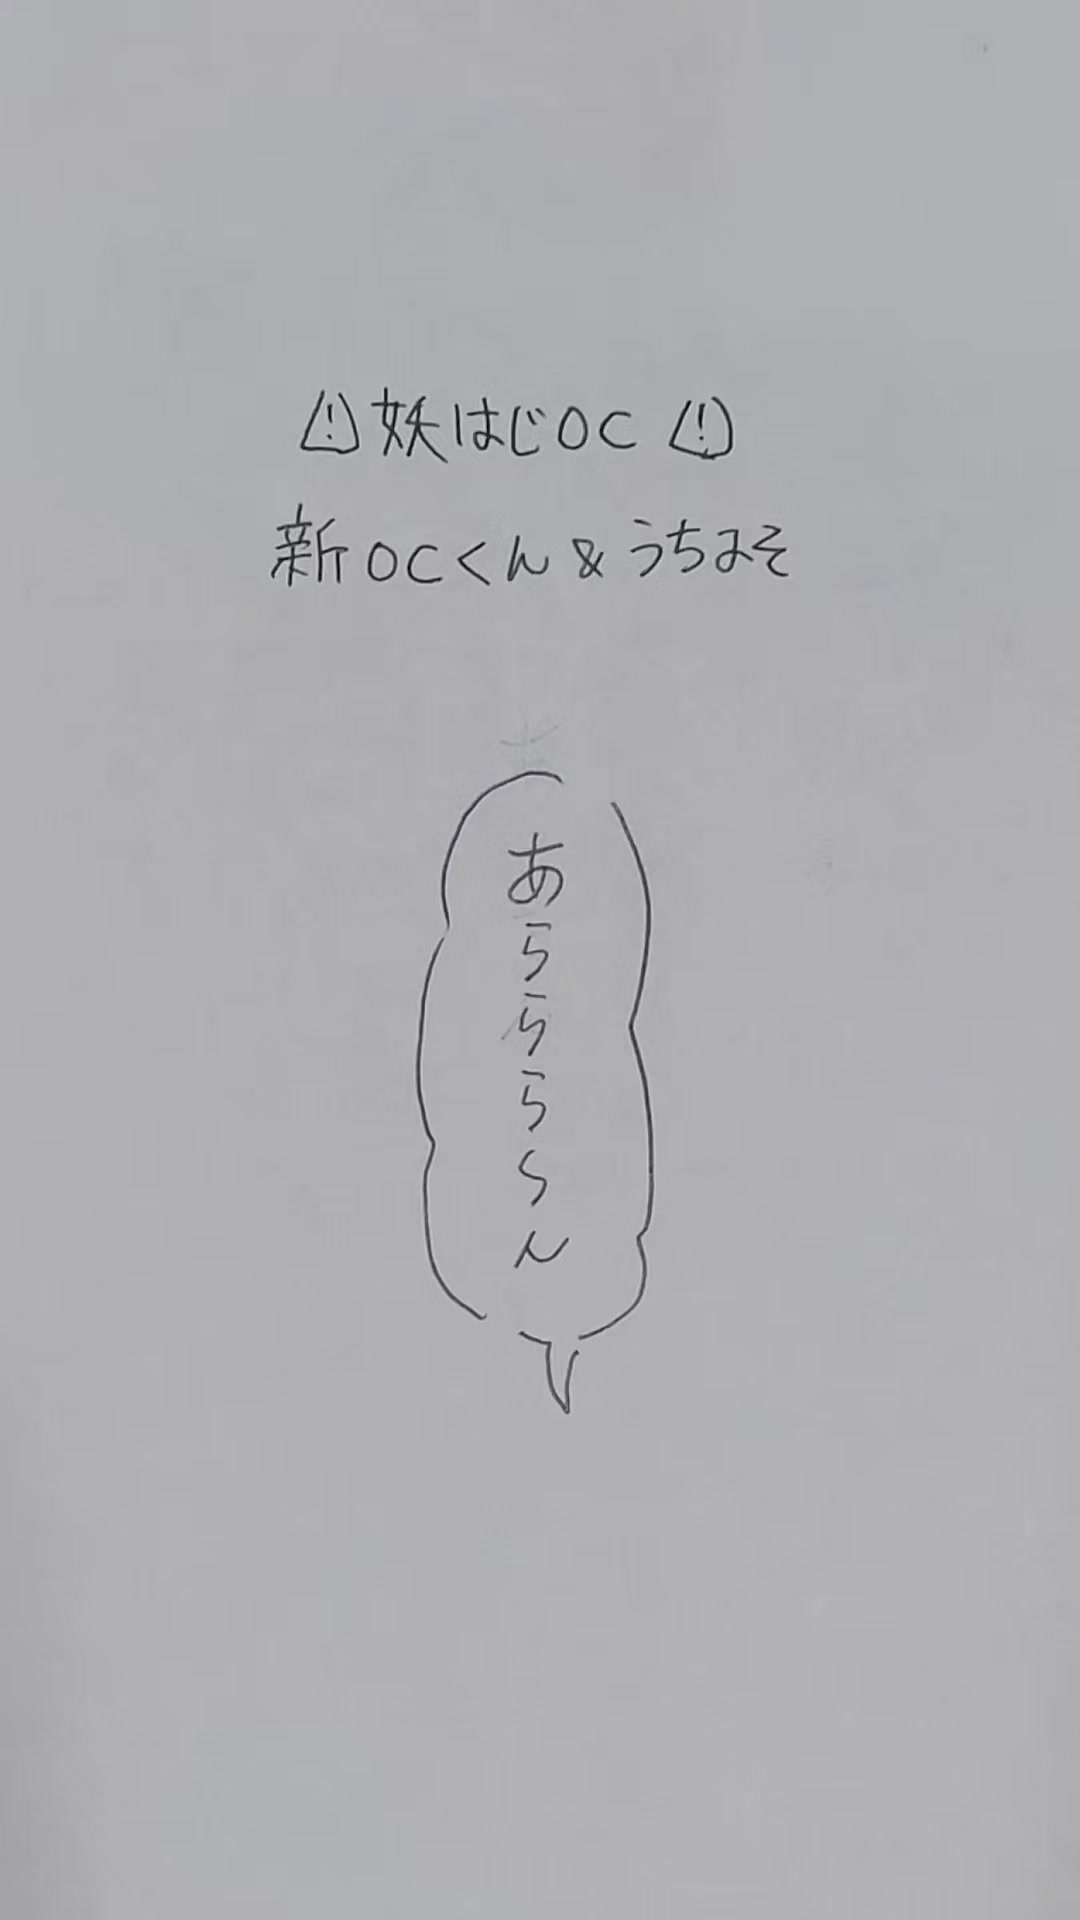 ⚠妖はじOC⚠
新OCくん&うちよそ
あららららん